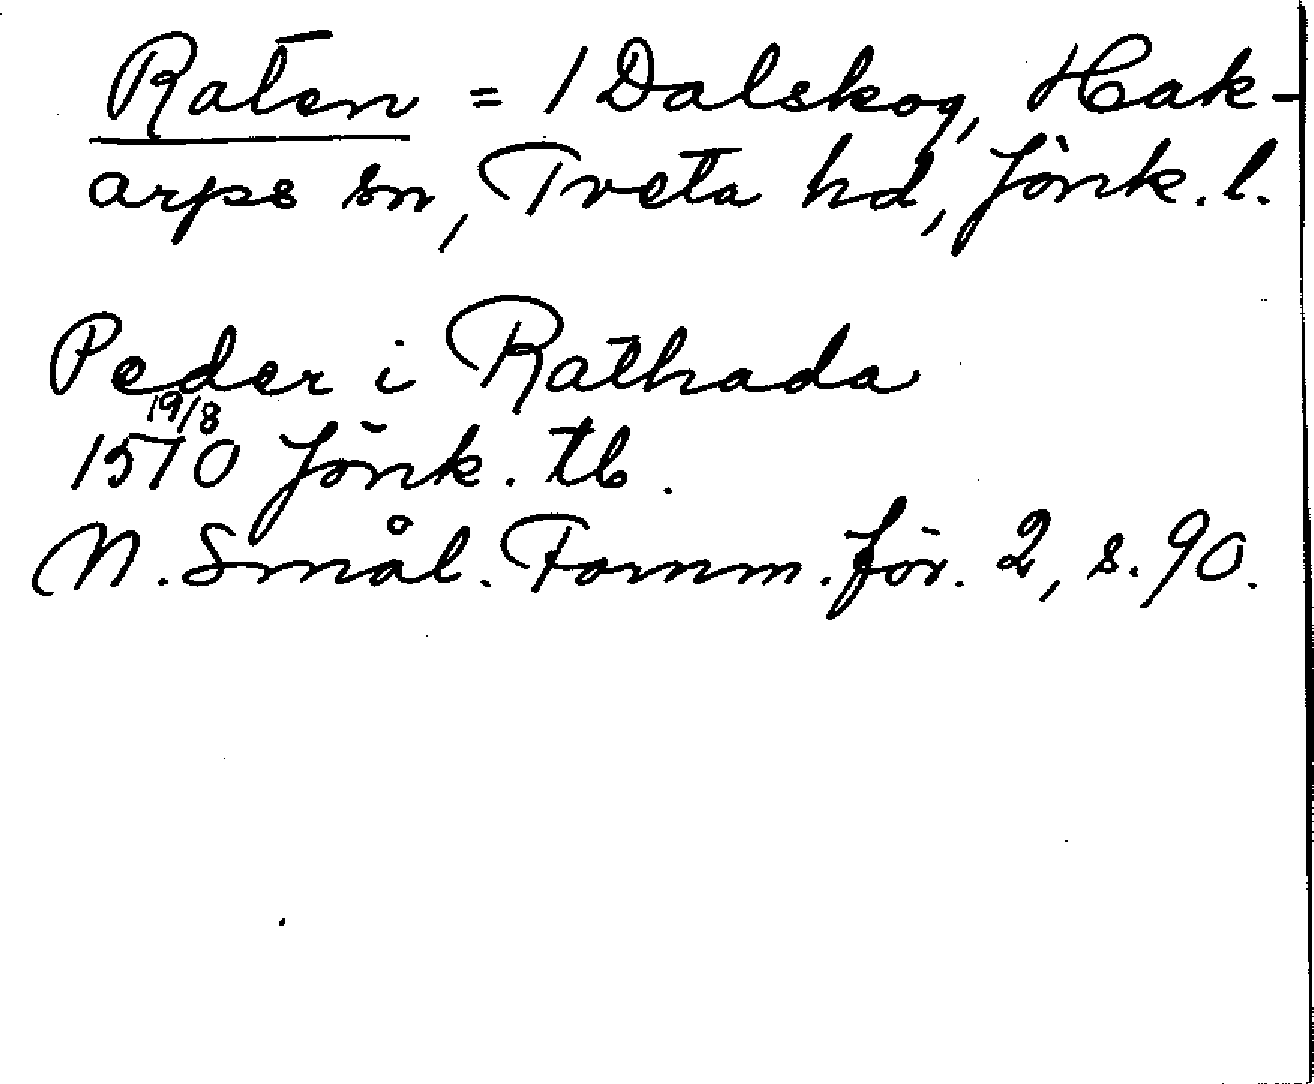 Raten = / Dalskog, Hak-
arps sn, Tveta hd, Jönk. l.
Peder i Rathada
19/8
1570 Jönk. tb.
N. Smål. Fornm. för. 2, s. 90.